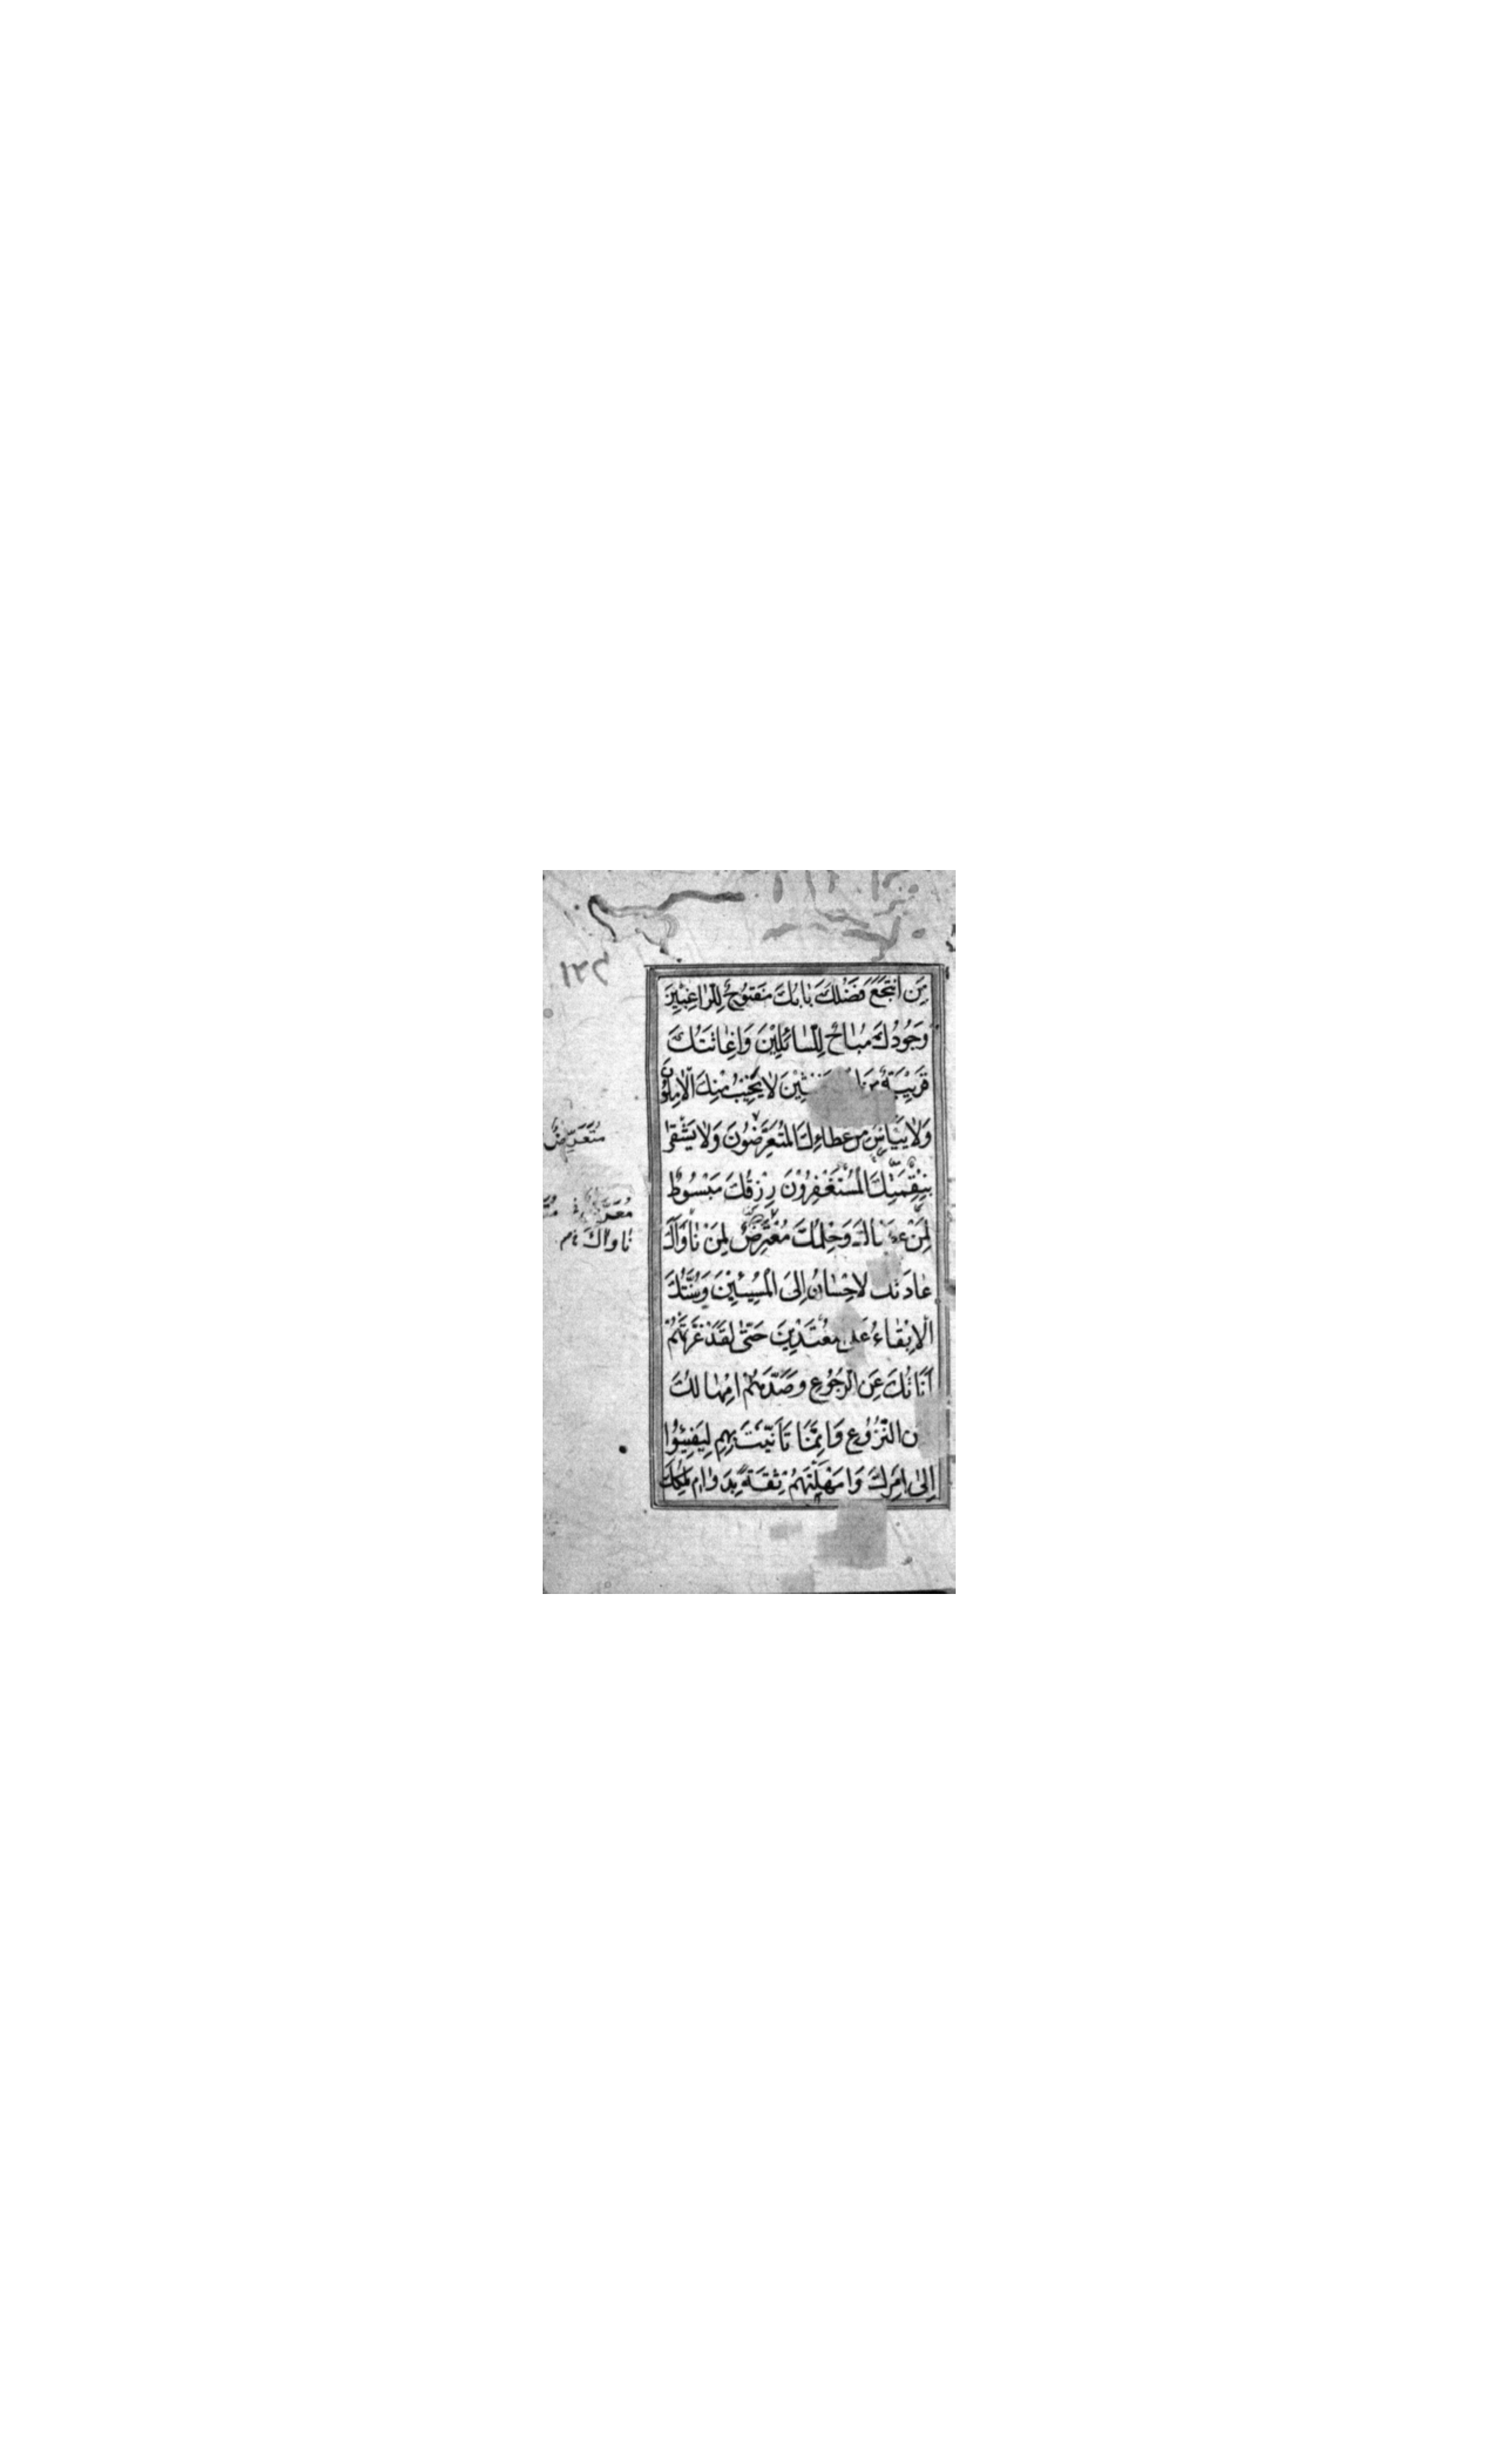 مَنِ انْتَجَعَ فَضْلَكَ بَابُكَ مَفْتُوحٌ لِلرَّاغِبِينَ
وَجُودُكَ مُبَاحٌ لِلسَّائِلِينَ وَإِغَاثَتُكَ
قَرِيبَةٌ مِنَ لَا يَخِيبُ مِنْكَ الْآمِلُونَ
وَلَا يَيْأَسُ مِنْ عَطَائِكَ الْمُتَعَرِّضُونَ وَلَا يَشْقَى
بِنِقْمَتِكَ الْمُسْتَغْفِرُونَ رِزْقُكَ مَبْسُوطٌ
لِمَنْ وَحِلْمُكَ مُعْتَرِضٌ لِمَنْ نَاوَاكَ
عَادَتُكَ الْإِحْسَانُ إِلَى الْمُسِيئِينَ وَسُنَّتُكَ
الْإِبْقَاءُ عَلَى مُعْتَدِينَ حَتَّى لَقَدْ غَرَّتْهُمْ
أَنَاتُكَ عَنِ الرُّجُوعِ وَصَدَّهُمْ إِمْهَالُكَ
النُّزُوعِ وَإِنَّمَا تَأَنَّيْتَ بِهِمْ لِيَفِيئُوا
إِلَى أَمْرِكَ وَأَمْهَلْتَهُمْ ثِقَةً بِدَوَامِ مُلْكِكَ
مُتَعَرِّضٌ
نَاوَاكَ